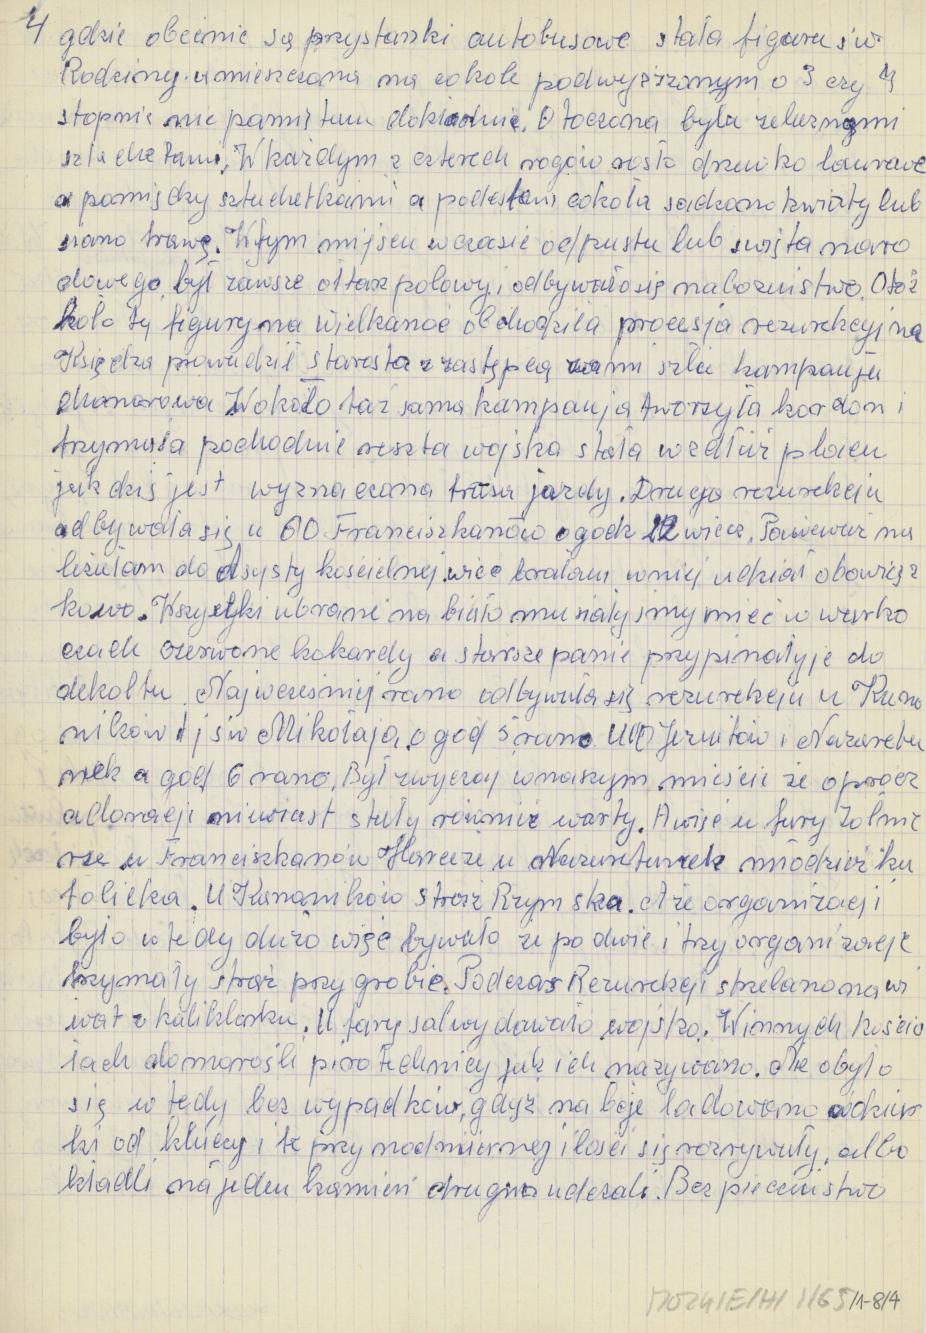 4 gdzie obecnie są przystanki autobusowe stała figura św
Rodziny umieszczona na cokole podwyższonym o 3 czy 4
stopnie nie pamiętam dokładnie. Otoczona była żelaznymi
sztachetami. W każdym z czterech rogów rosło drzewko laurowe
a pomiędzy sztachetkami a podestem cokoła sadzono kwiaty lub
siano trawę. W tym miejscu w czasie odpustu lub święta naro
dowego był zawsze ołtarz polowy i odbywało się nabożeństwo. Otóż
koło tej figury na Wielkanoc obchodziła procesja rezurekcyjna
Księdza prowadził starosta z zastępcą za nimi szła kampanja
honorowa Wokoło taż sama kampanja tworzyła kordon i
trzymała pochodnie reszta wojska stała wzdłuż placu
jak dziś jest wyznaczona trasa jazdy. Druga rezurekcja
odbywała się u OO. Franciszkanów o godz 12 wiecz. Ponieważ na
leżałam do asysty kościelnej więc brałam w niej udział obowiąz
kowo. Wszystki ubrane na biało musiałyśmy mieć w warko
czach czerwone kokardy a starsze panie przypinały je do
dekoltu. Najwcześniej rano odbywała się rezurekcja u Kano
ników tj św Mikołaja o god 5 rano. U OO Jezuitów i Nazareta
nek o god 6 rano. Był zwyczaj w naszym mieście że oprócz
adoracji niewiast stały również warty. A więc u fary żołnie
rze u Franciszkanów Harcerze u Nazaretanek młodzież ka
tolicka. U Kanoników Straż Rzymska. A że organizacji
było wtedy dużo więc bywało że po dwie i trzy organizacje
trzymały straż przy grobie. Podczas Rezurekcji strzelano na wi
wat z kaliklorku. U fary salwy dawało wojsko. W innych kościo
łach domorośli pirotechnicy jak ich nazywano. Nie obyło
się wtedy bez wypadków, gdyż naboje ładowano w dziur
ki od kluczy i te przy nadmiernej ilości się rozrywały, albo
kładli na jeden kamień drugim uderzali. Bezpieczeństwo
1/65/1-8/4